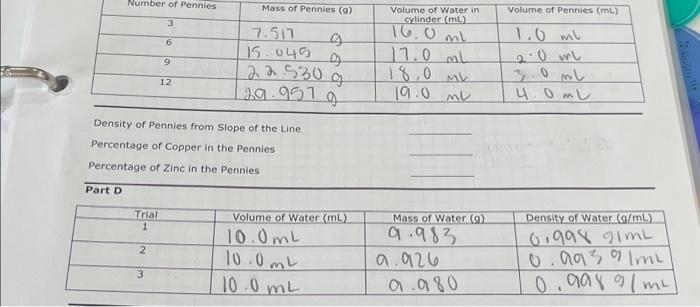 Number of Pennies Mass of Pennies (g) Volume of Water in cylinder (mL) Volume of Pennies (mL)
3 7.517 g 16.0 mL 1.0 mL
6 15.049 g 17.0 mL 2.0 mL
9 22.530 g 18.0 mL 3.0 mL
12 29.957 g 19.0 mL 4.0 mL
Density of Pennies from Slope of the Line
Percentage of Copper in the Pennies
Percentage of Zinc in the Pennies
Part D
Trial Volume of Water (mL) Mass of Water (g) Density of Water (g/mL)
1 10.0 mL 9.983 0.998 g/mL
2 10.0 mL 9.926 0.993 g/mL
3 10.0 mL 9.980 0.998 g/mL